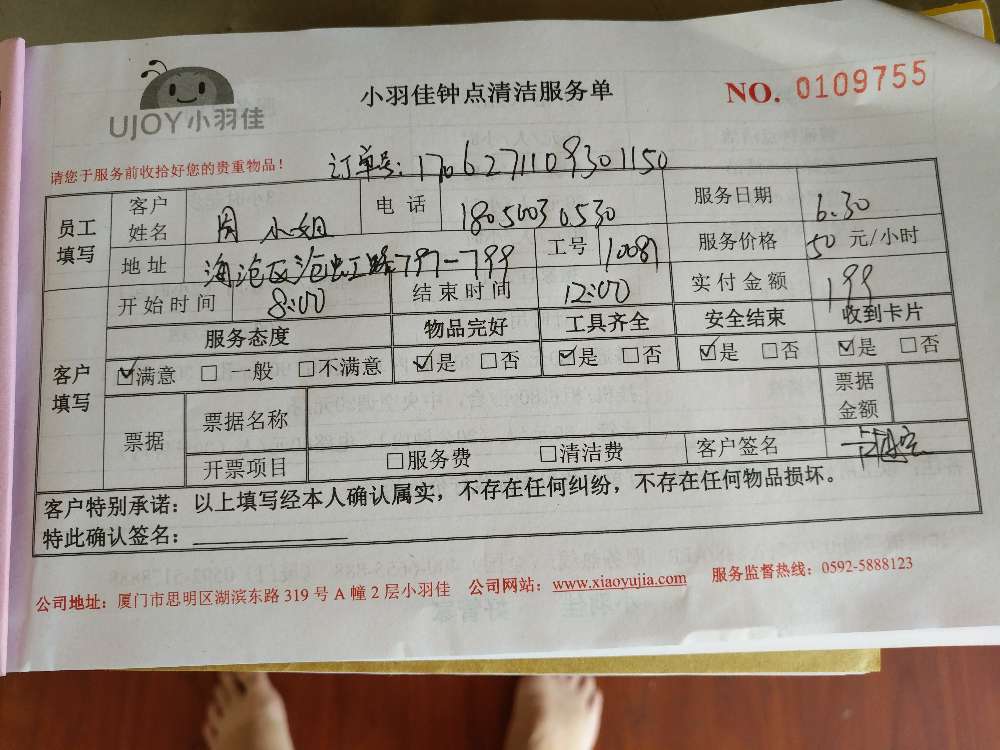 UJOY小羽佳
小羽佳钟点清洁服务单
NO. 0109755
请您于服务前收拾好您的贵重物品!
订单号:1706271109301150
员工填写 客户姓名 周小姐 电话 18050030530 服务日期 6.30
地址 海沧区沧虹路797-799 工号 10087 服务价格 50 元/小时
开始时间 8:00 结束时间 12:00 实付金额 199
客户填写 服务态度 物品完好 工具齐全 安全结束 收到卡片
☑满意 □一般 □不满意 ☑是 □否 ☑是 □否 ☑是 □否 ☑是 □否
票据 票据名称 票据金额
开票项目 □服务费 □清洁费 客户签名
客户特别承诺:以上填写经本人确认属实,不存在任何纠纷,不存在任何物品损坏。
特此确认签名:
公司地址:厦门市思明区湖滨东路 319 号 A 幢 2 层小羽佳 公司网站:www.xiaoyujia.com 服务监督热线:0592-5888123